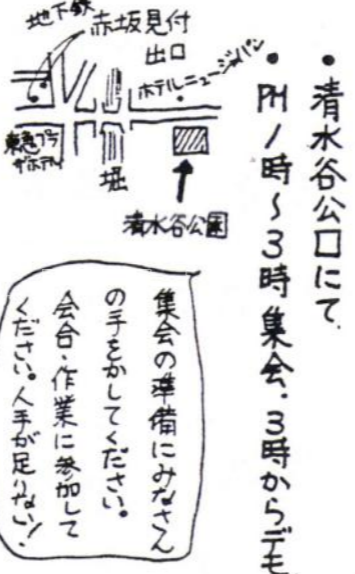 ・清水谷公口にて.
・PM1時~3時集会.3時からデモ
地下鉄
赤坂見付
出口
ホテルニュージャパン
東急プラ
ザホテル
堀
清水谷公園
集会の準備にみなさん
の手をかしてください。
会合・作業に参加して
ください。人手が足りない!